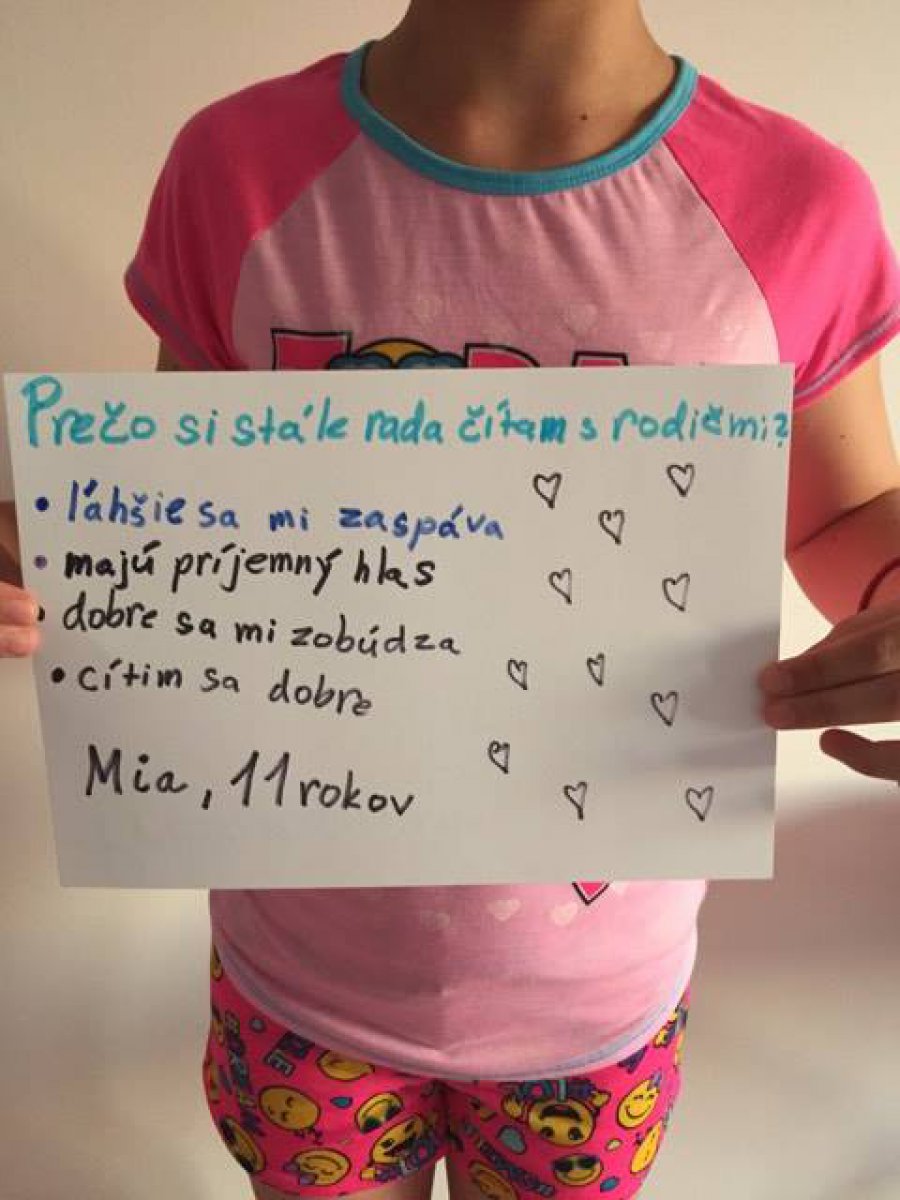 Prečo si stále rada čítam s rodičmi?
• ľáhšie sa mi zaspáva
• majú príjemný hlas
• dobre sa mi zobúdza
• cítim sa dobre
Mia, 11 rokov